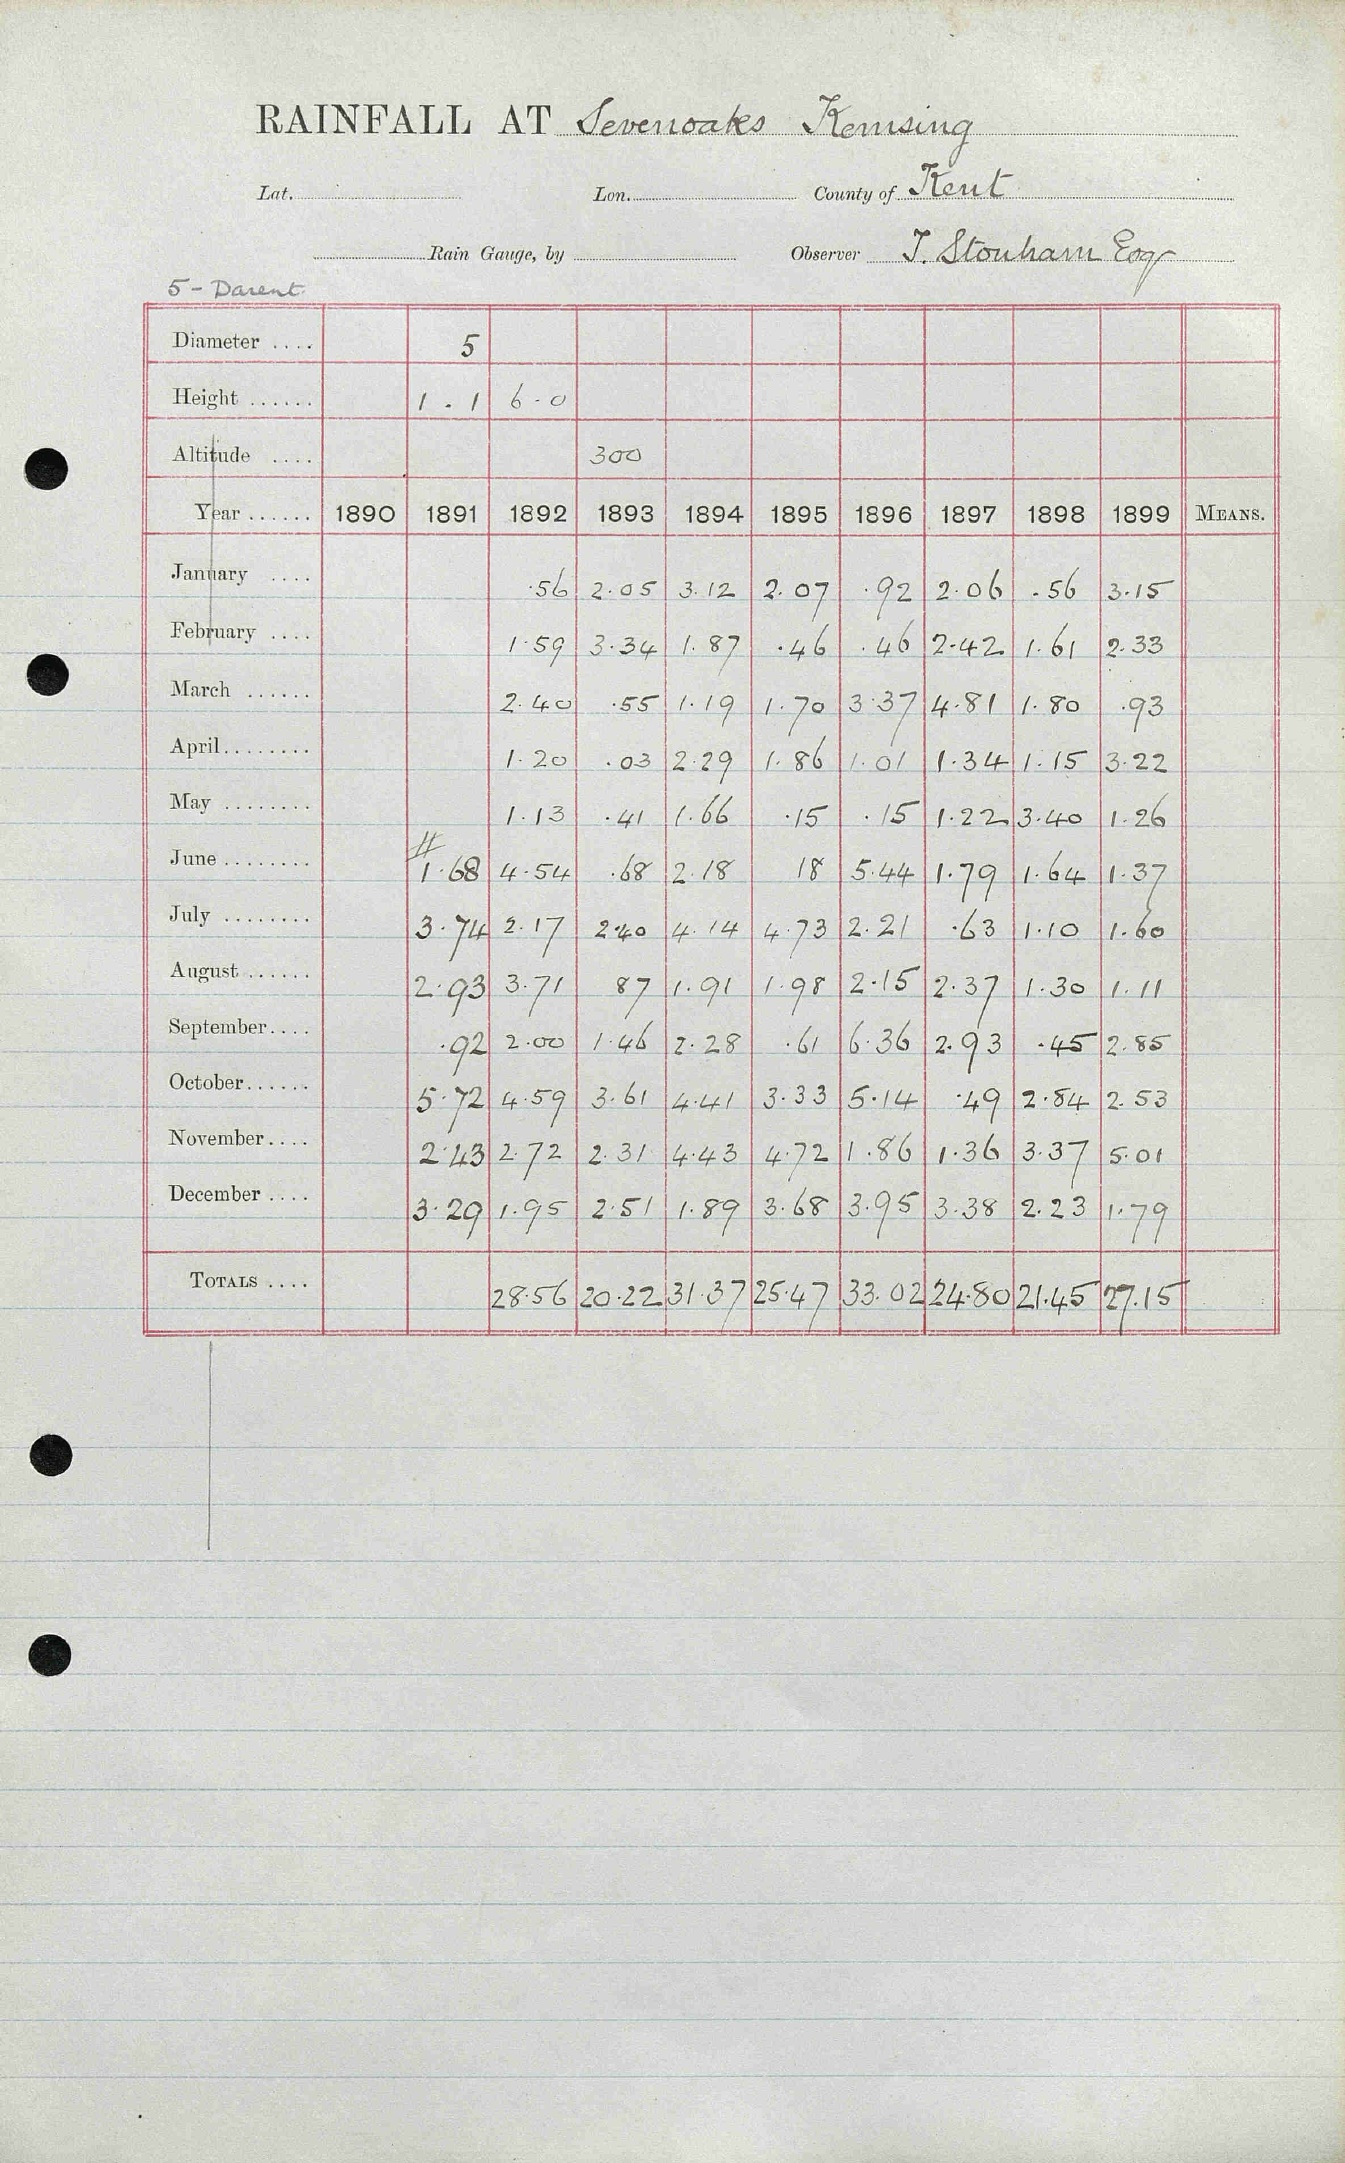 RAINFALL AT Sevenoaks Kemsing
Lat. Lon. County of Kent
Rain Gauge, by Observer T. Stonham Esq
5 - Darent
Diameter .... 5
Height ...... 1 . 1 6 - 0
Altitude .... 300
Year ...... 1890 1891 1892 1893 1894 1895 1896 1897 1898 1899 MEANS.
January .... .56 2.05 3.12 2.07 .92 2.06 .56 3.15
February .... 1.59 3.34 1.87 .46 .46 2.42 1.61 2.33
March ...... 2.40 .55 1.19 1.70 3.37 4.81 1.80 .93
April ........ 1.20 .03 2.29 1.86 1.01 1.34 1.15 3.22
May ........ 1.13 .41 1.66 .15 .15 1.22 3.40 1.26
June ........ # 1.68 4.54 .68 2.18 18 5.44 1.79 1.64 1.37
July ........ 3.74 2.17 2.40 4.14 4.73 2.21 .63 1.10 1.60
August ...... 2.93 3.71 87 1.91 1.98 2.15 2.37 1.30 1.11
September .... .92 2.00 1.46 2.28 .61 6.36 2.93 .45 2.85
October ...... 5.72 4.59 3.61 4.41 3.33 5.14 .49 2.84 2.53
November .... 2.43 2.72 2.31 4.43 4.72 1.86 1.36 3.37 5.01
December .... 3.29 1.95 2.51 1.89 3.68 3.95 3.38 2.23 1.79
TOTALS .... 28.56 20.22 31.37 25.47 33.02 24.80 21.45 27.15